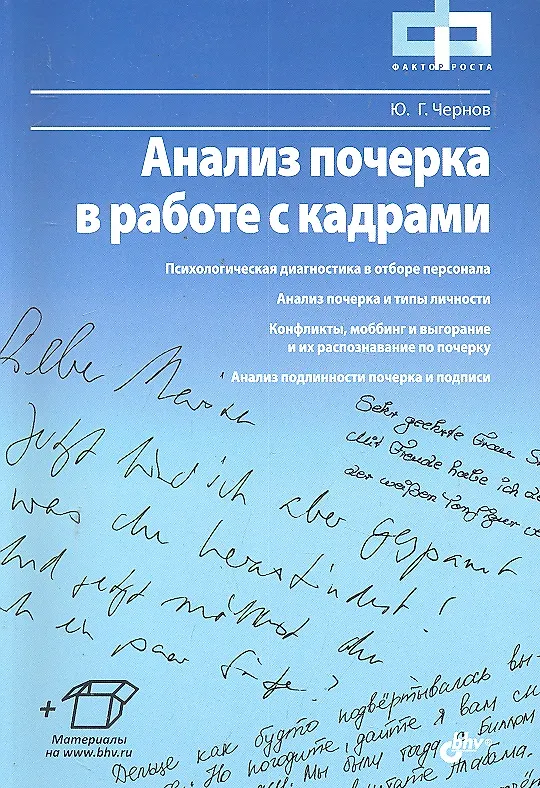 ФАКТОР РОСТА
Ю. Г. Чернов
Анализ почерка
в работе с кадрами
Психологическая диагностика в отборе персонала
Анализ почерка и типы личности
Конфликты, моббинг и выгорание
и их распознавание по почерку
Анализ подлинности почерка и подписи
Liebe
Sehr geehrte Frau
mit Freude habe ich
Jetzt bin ich aber gespannt
der weißen
was du herausfindest!
und jetzt möchtest du
ein paar
+ Материалы
на www.bhv.ru
Дальше как будто подвёртывалось вы-
Но погодите, дайте я вам
Мы были тогда с Биллом
bhv®